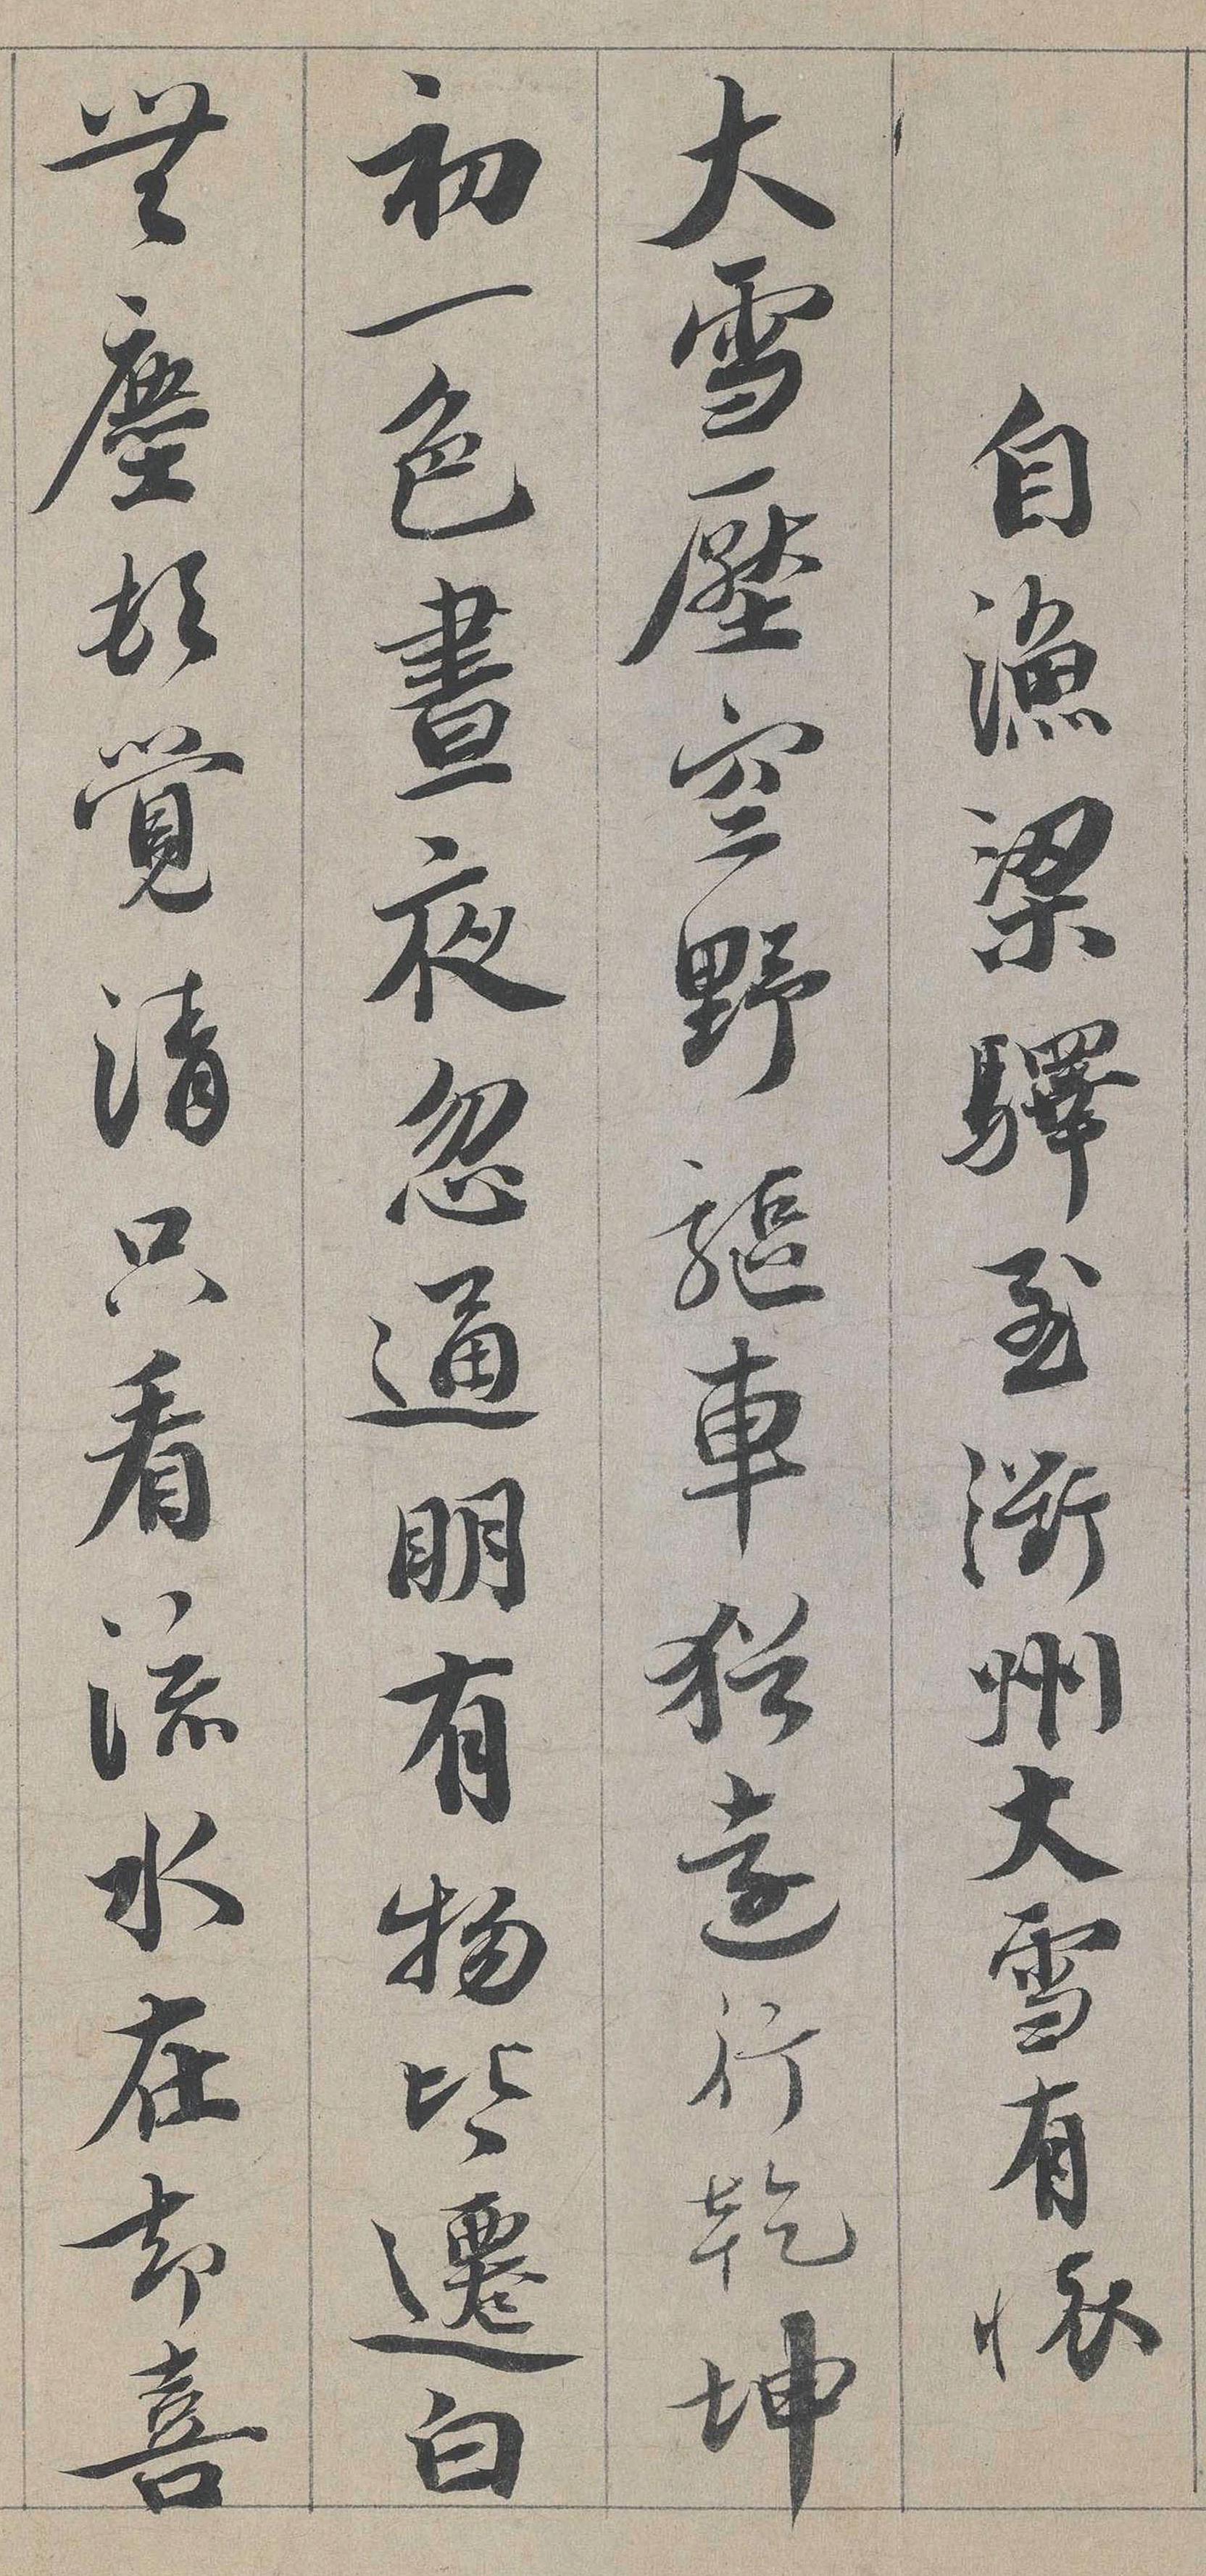 自漁梁驛至衢州大雪有懷
大雪壓空野驅車猶遠行乾坤
初一色晝夜忽通明有物皆遷白
無塵頓覺清只看流水在却喜